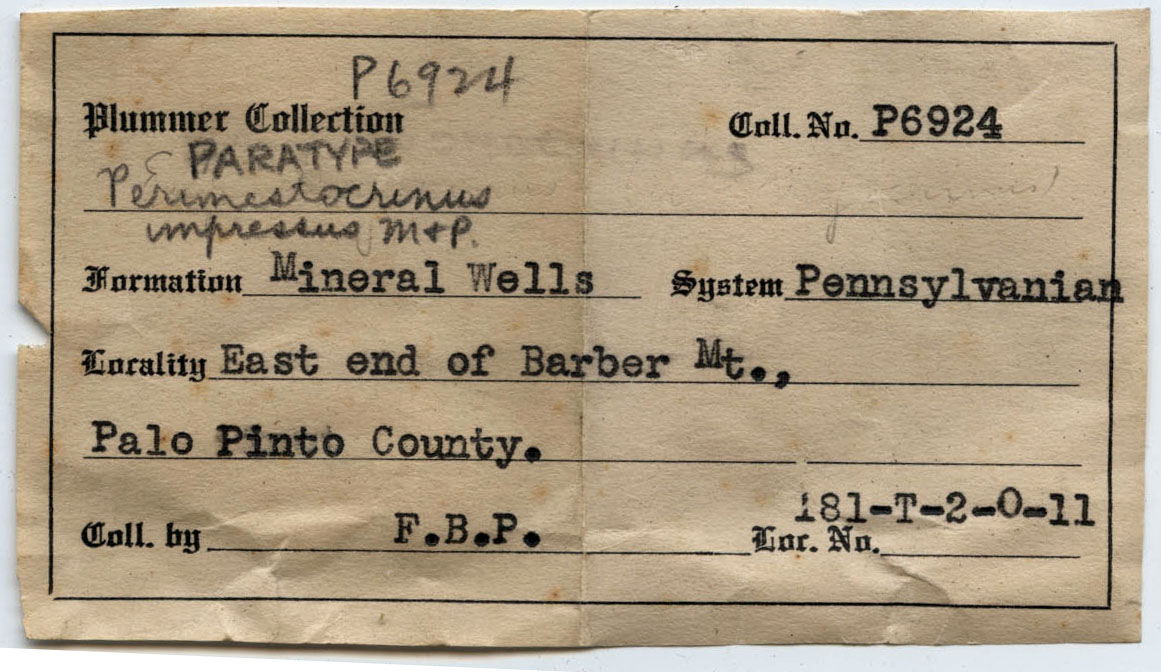 P6924
Plummer Collection Coll. No. P6924
PARATYPE
Perimestocrinus
impressus M+P.
Formation Mineral Wells System Pennsylvanian
Locality East end of Barber Mt.,
Palo Pinto County.
181-T-2-O-11
Coll. by F.B.P. Loc. No.